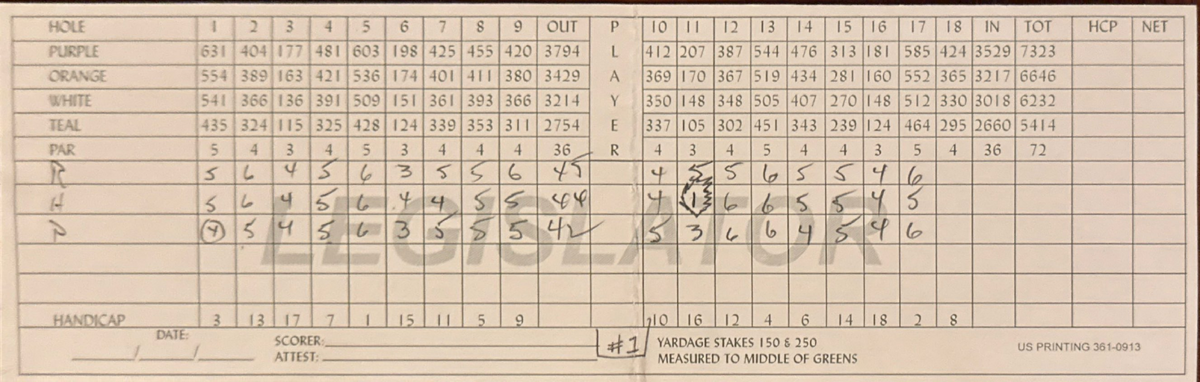 HOLE 1 2 3 4 5 6 7 8 9 OUT P 10 11 12 13 14 15 16 17 18 IN TOT HCP NET
PURPLE 631 404 177 481 603 198 425 455 420 3794 L 412 207 387 544 476 313 181 585 424 3529 7323
ORANGE 554 389 163 421 536 174 401 411 380 3429 A 369 170 367 519 434 281 160 552 365 3217 6646
WHITE 541 366 136 391 509 151 361 393 366 3214 Y 350 148 348 505 407 270 148 512 330 3018 6232
TEAL 435 324 115 325 428 124 339 353 311 2754 E 337 105 302 451 343 239 124 464 295 2660 5414
PAR 5 4 3 4 5 3 4 4 4 36 R 4 3 4 5 4 4 3 5 4 36 72
R 5 6 4 5 6 3 5 5 6 45 4 5 5 6 5 5 4 6
H 5 6 4 5 6 4 4 5 5 44 4 1 6 6 5 5 4 5
P 4 5 4 5 6 3 5 5 5 42 5 3 6 6 4 5 4 6
LEGISLATOR
HANDICAP 3 13 17 7 1 15 11 5 9 10 16 12 4 6 14 18 2 8
DATE: __/__/__ SCORER: #1 YARDAGE STAKES 150 & 250
ATTEST: MEASURED TO MIDDLE OF GREENS
US PRINTING 361-0913